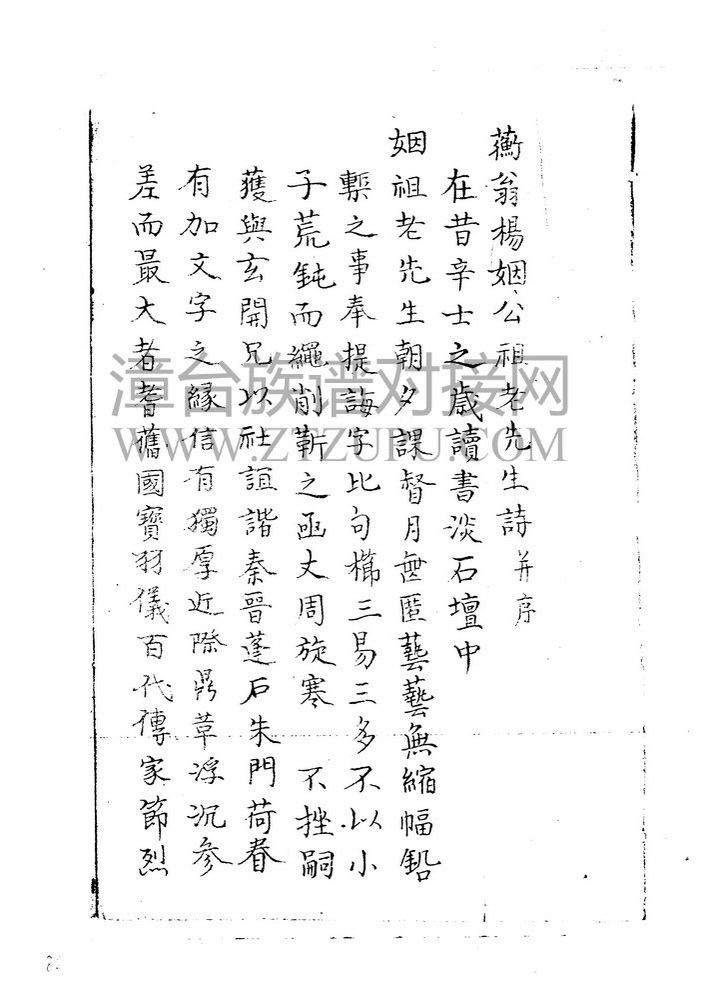 蘅翁楊姻公祖老先生詩 并序
在昔辛士之歲讀書淡石壇中
姻祖老先生朝夕課督月 匿藝藝無縮幅鉛
槧之事奉提誨字比句櫛三易三多不以小
子荒鈍而繩削靳之函丈周旋寒 不挫嗣
獲與玄開兄以社誼諧秦晉蓬戶朱門荷眷
有加文字之緣信有獨厚近際鼎革浮沉參
差而最大者耆舊國寶羽儀百代傳家節烈
漳台族谱对接网
WWW.ZTZUPU.COM